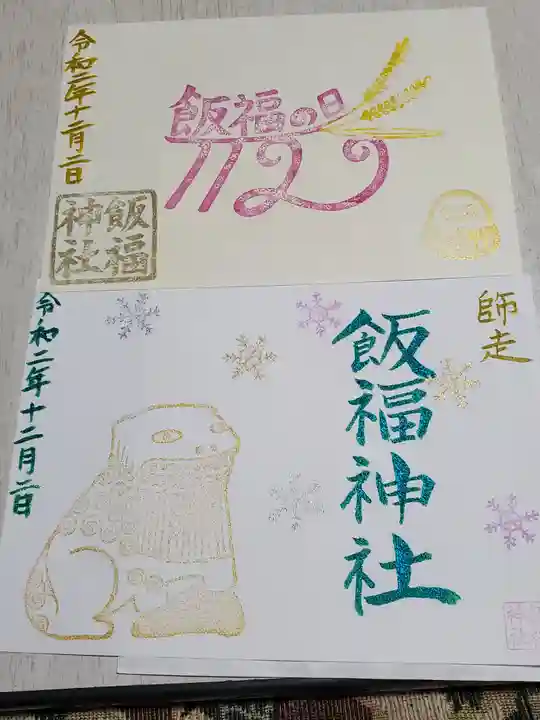 令和二年十二月二日
飯福の日
1129
飯福
神社
師走
飯福神社
令和二年十二月二日